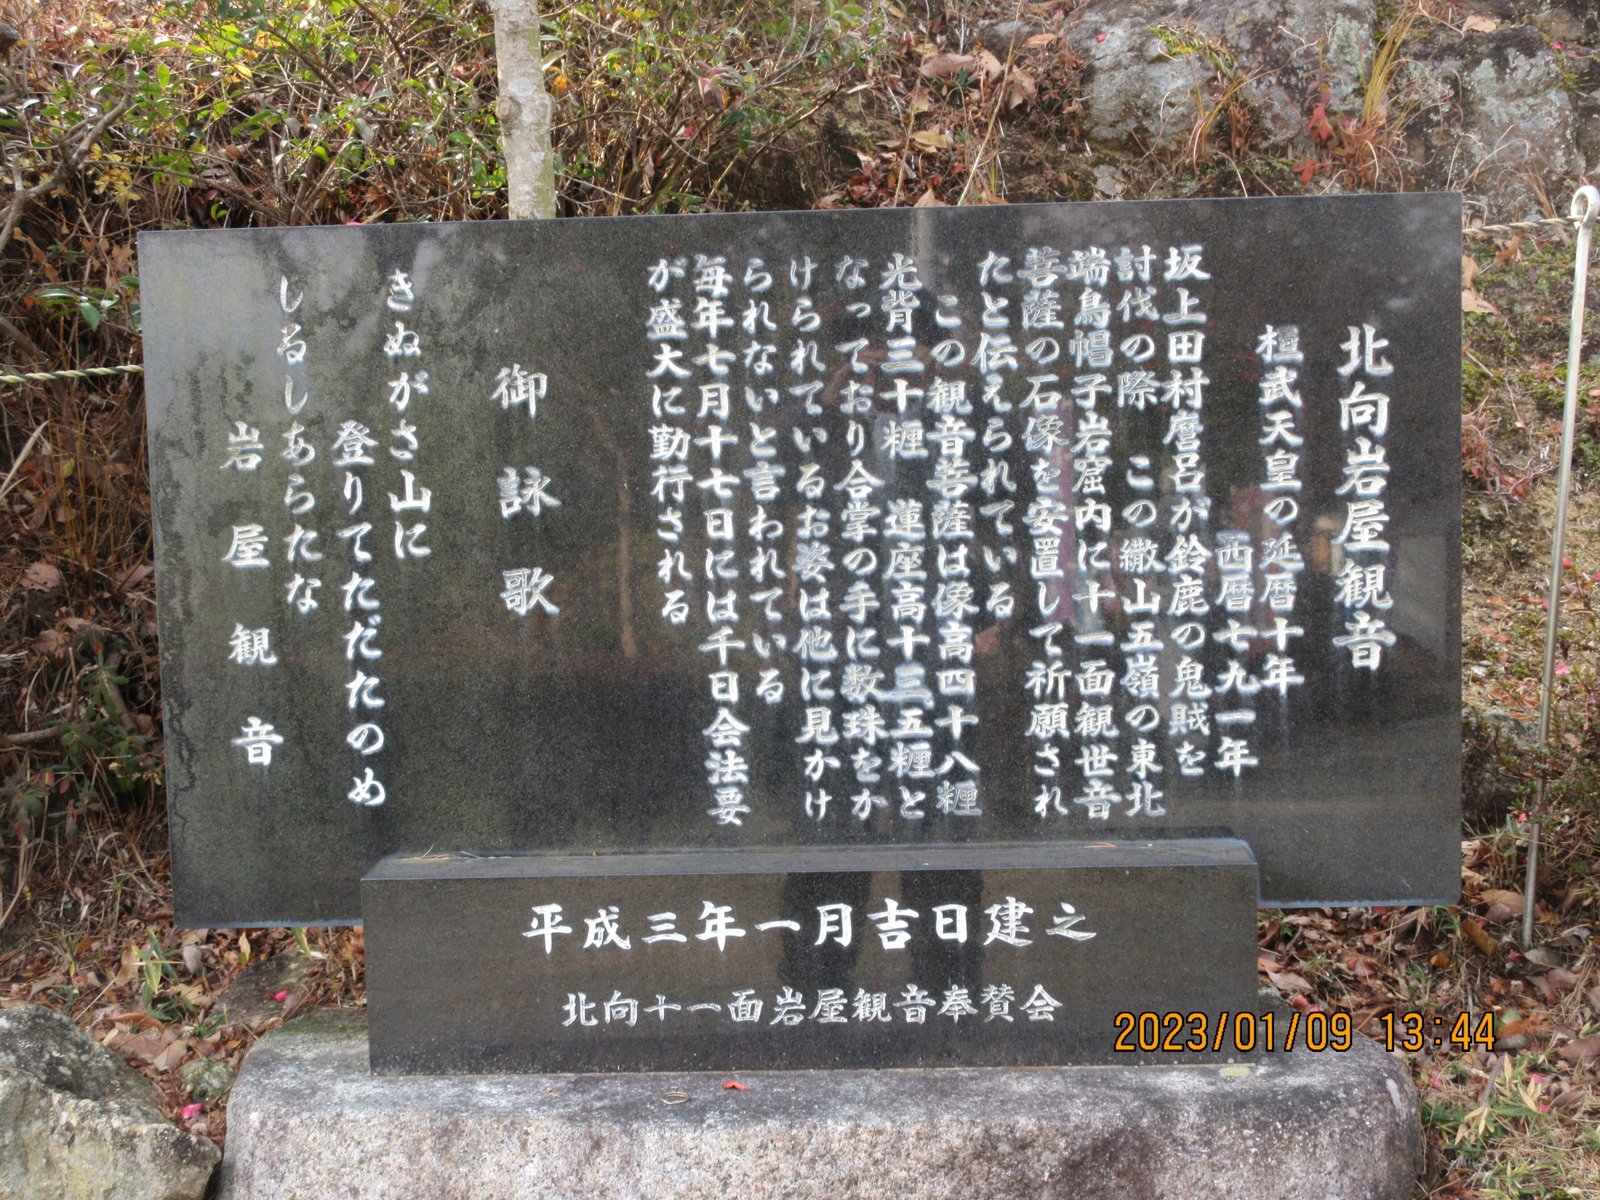 北向岩屋観音
桓武天皇の延暦十年
西暦七九一年
坂上田村麿呂が鈴鹿の鬼賊を
討伐の際 この繖山五嶺の東北
端鳥帽子岩窟内に十一面観世音
菩薩の石像を安置して祈願され
たと伝えられている
この観音菩薩は像高四十八糎
光背三十糎 蓮座高十三五糎と
なっており合掌の手に数珠をか
けられているお姿は他に見かけ
られないと言われている
毎年七月十七日には千日会法要
が盛大に勤行される
御詠歌
きぬがさ山に
登りてただたのめ
しるしあらたな
岩屋観音
平成三年一月吉日建之
北向十一面岩屋観音奉賛会
2023/01/09 13:44